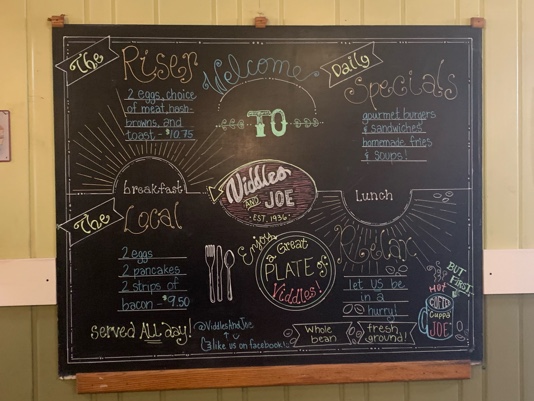 The
Riser
2 eggs, choice
of meat, hash-
browns, and
toast - $10.75
breakfast
The
Local
2 eggs
2 pancakes
2 strips of
bacon - $9.50
served ALL day!
Welcome
TO
Viddles
AND JOE
• EST. 1936 •
Enjoy
a Great
PLATE of
Viddles!
@ViddlesAndJoe
like us on facebook!
Daily
Specials
gourmet burgers
& sandwiches
homemade fries
& soups!
Lunch
Relax
let US be
in a
hurry!
BUT
FIRST,
HOT
COFFEE
Cuppa
JOE!
Whole
bean
fresh
ground!